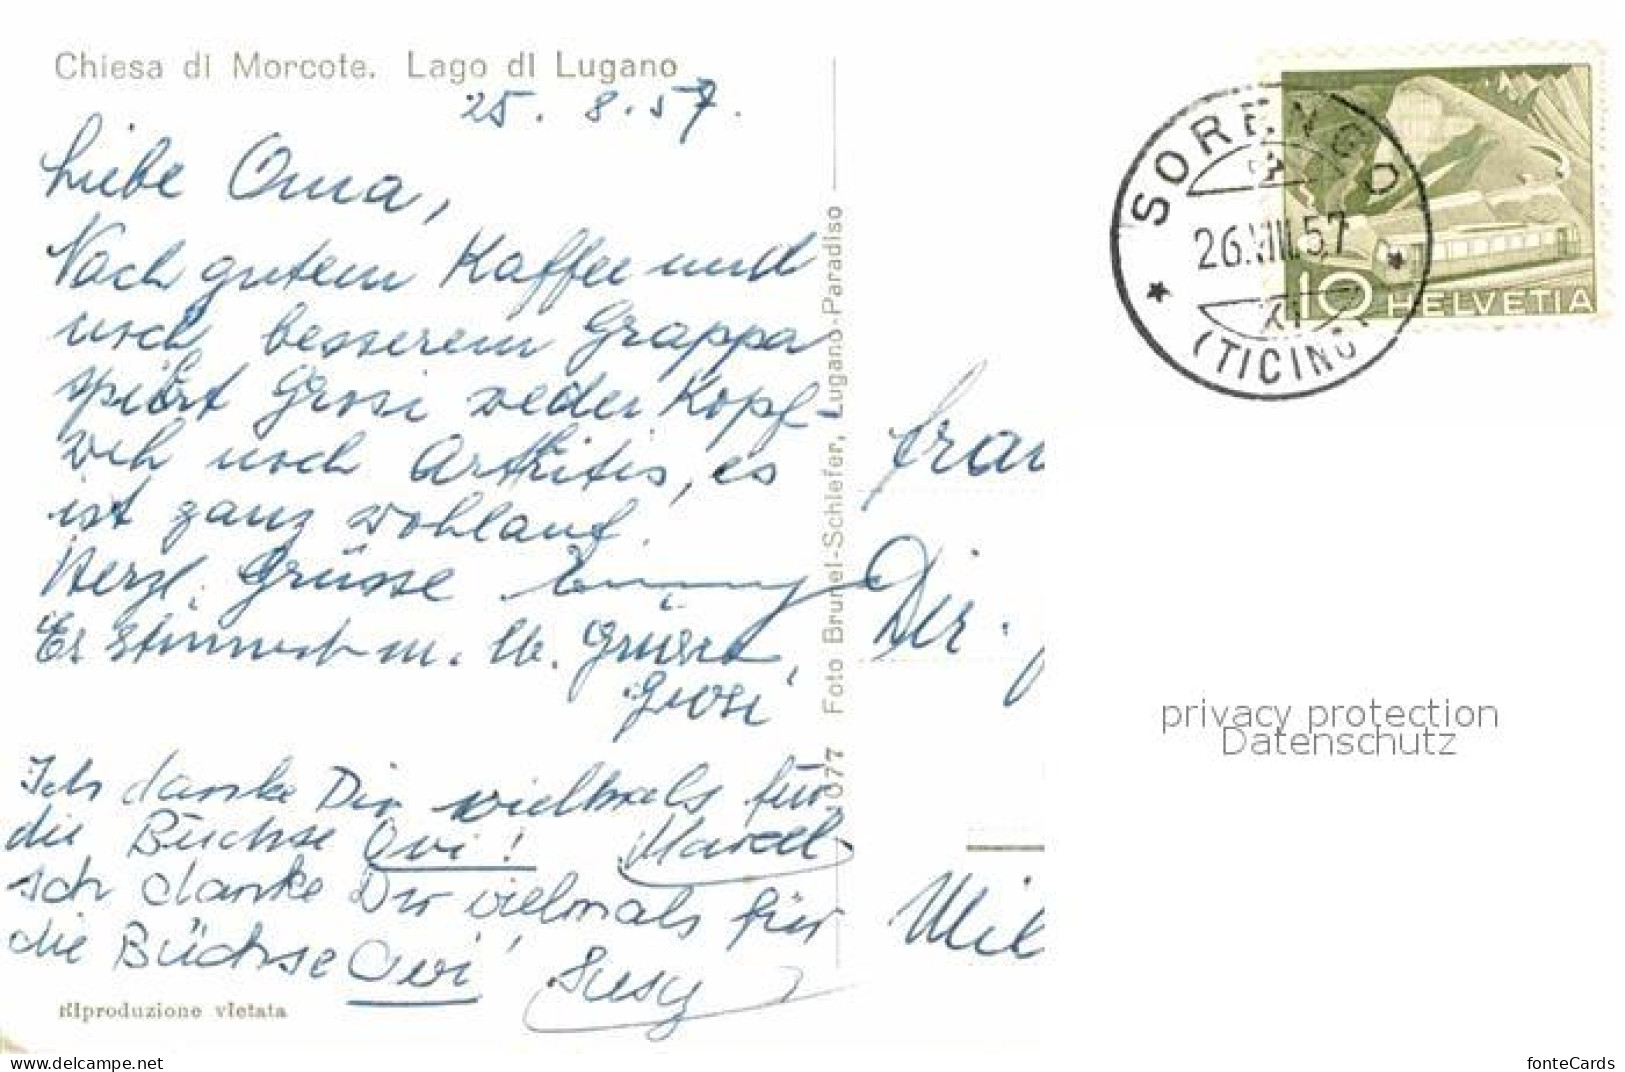 Chiesa di Morcote. Lago di Lugano
25. 8. 57.
Liebe Oma,
Nach gutem Kaffee und
noch besserem Grappa
spürt Grosi weder Kopf-
weh noch Arthritis, es
ist ganz wohlauf.
Herzl. Grüsse
Es stimmt m. lb. Grüssen,
Grosi
Ich danke Dir vielmals für
die Büchse Ovi! Marcel
Ich danke Dir vielmals für
die Büchse Ovi! Susy
Riproduzione vietata
1077 Foto Brunel-Schlefer, Lugano-Paradiso
SORENGO
26.VIII.57
(TICINO)
10 HELVETIA
Frau
Dir.
Mil
privacy protection
Datenschutz
www.delcampe.net
fonteCards